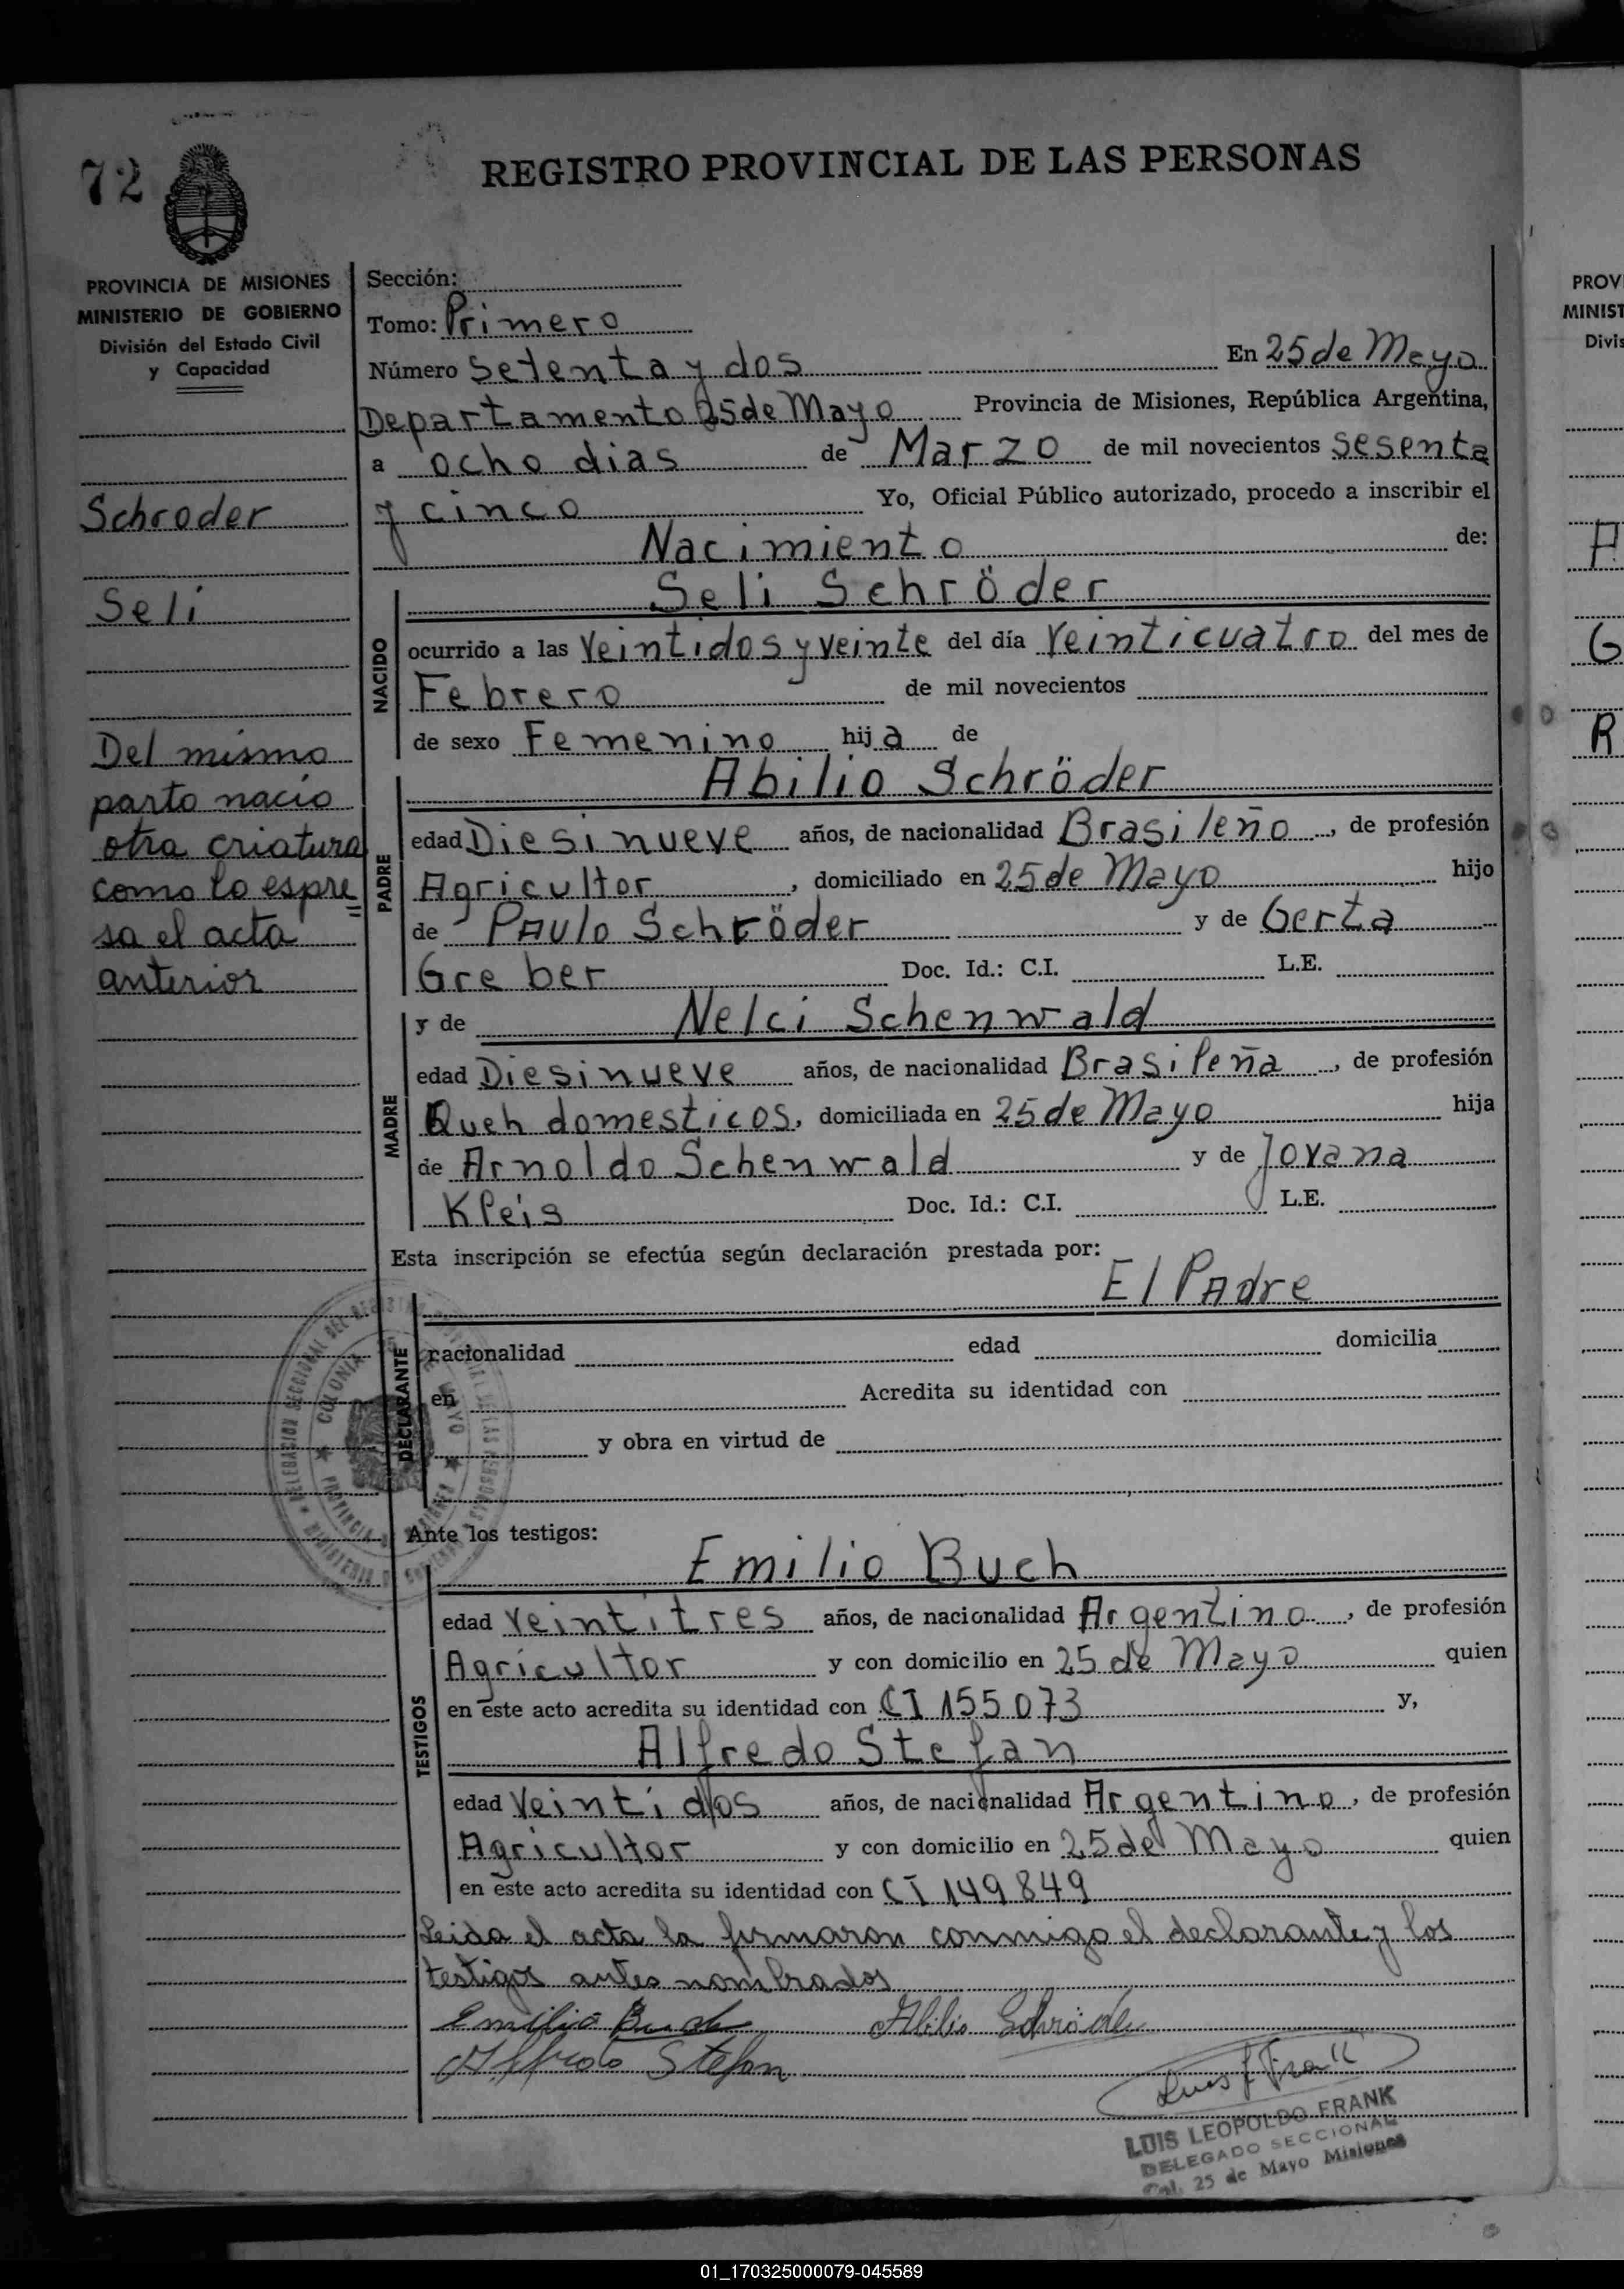 72
REGISTRO PROVINCIAL DE LAS PERSONAS
PROVINCIA DE MISIONES
MINISTERIO DE GOBIERNO
División del Estado Civil
y Capacidad
Schroder
Seli
Del mismo
parto nacio
otra criatura
como lo espre
sa el acta
anterior
Sección:
Tomo: Primero
Número Setenta y dos En 25 de Mayo
Departamento 25 de Mayo Provincia de Misiones, República Argentina,
a ocho dias de Marzo de mil novecientos sesenta
y cinco Yo, Oficial Público autorizado, procedo a inscribir el
Nacimiento de:
Seli Schröder
NACIDO
ocurrido a las Veintidos y veinte del día Veinticuatro del mes de
Febrero de mil novecientos
de sexo Femenino hija de
Abilio Schröder
PADRE
edad Diesinueve años, de nacionalidad Brasileño, de profesión
Agricultor, domiciliado en 25 de Mayo hijo
de Paulo Schröder y de Gerta
Greber Doc. Id.: C.I. L.E.
y de Nelci Schenwald
MADRE
edad Diesinueve años, de nacionalidad Brasileña, de profesión
Queh domesticos, domiciliada en 25 de Mayo hija
de Arnoldo Schenwald y de Jovana
Kleis Doc. Id.: C.I. L.E.
Esta inscripción se efectúa según declaración prestada por:
El Padre
DECLARANTE
nacionalidad edad domicilia
en Acredita su identidad con
y obra en virtud de
Ante los testigos:
Emilio Buch
TESTIGOS
edad Veintitres años, de nacionalidad Argentino, de profesión
Agricultor y con domicilio en 25 de Mayo quien
en este acto acredita su identidad con CI 155073 y,
Alfredo Stefan
edad Veintidos años, de nacionalidad Argentino, de profesión
Agricultor y con domicilio en 25 de Mayo quien
en este acto acredita su identidad con CI 149849
Leida el acta la firmaron conmigo el declarante y los
testigos antes nombrados
Emilio Buch Abilio Schröder
Alfredo Stefan
LUIS LEOPOLDO FRANK
DELEGADO SECCIONAL
Col. 25 de Mayo Misiones
PROV
MINIST
Divis
P.
G
R
01_170325000079-045589